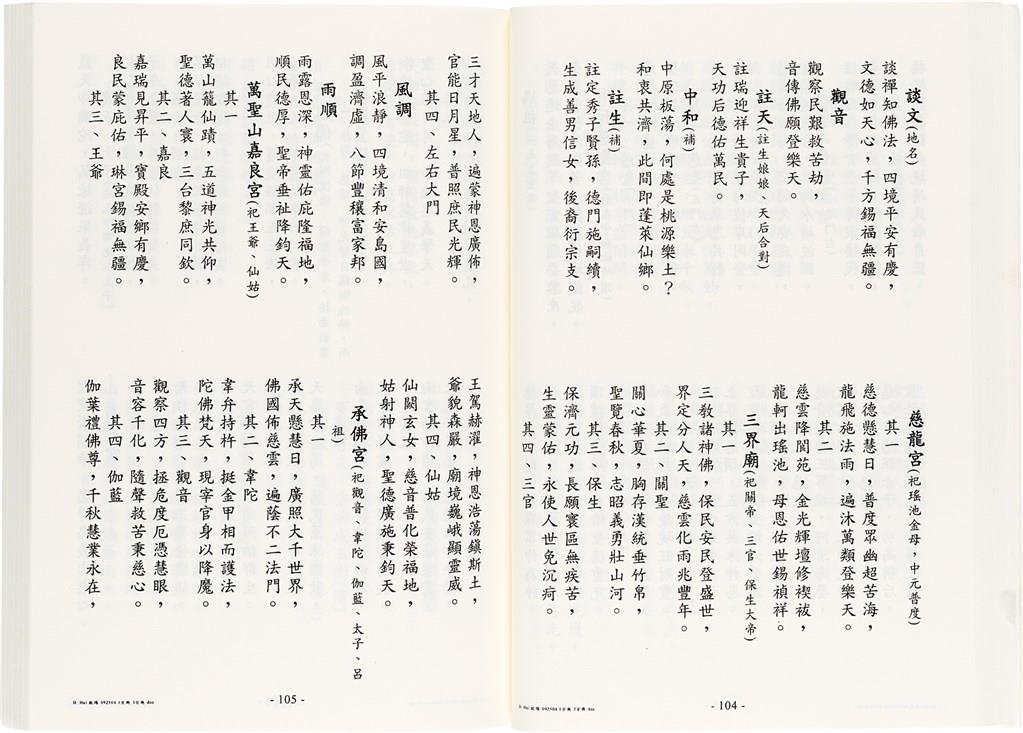 談文(地名)
談禪知佛法，四境平安有慶，
文德如天心，千方錫福無疆。
觀音
觀察民艱救苦劫，
音傳佛願登樂天。
註天(註生娘娘、天后合對)
註瑞迎祥生貴子，
天功后德佑萬民。
中和(補)
中原板蕩，何處是桃源樂土？
和衷共濟，此間即蓬萊仙鄉。
註生(補)
註定秀子賢孫，德門施嗣續，
生成善男信女，後裔衍宗支。
慈龍宮(祀瑤池金母，中元普度)
其一
慈德懸慧日，普度眾幽超苦海，
龍飛施法雨，遍沐萬類登樂天。
其二
慈雲降閬苑，金光輝壇修禊祓，
龍軻出瑤池，母恩佑世錫禎祥。
三界廟(祀關帝、三官、保生大帝)
其一
三教諸神佛，保民安民登盛世，
界定分人天，慈雲化雨兆豐年。
其二、關聖
關心華夏，胸存漢統垂竹帛，
聖覽春秋，志昭義勇壯山河。
其三、保生
保濟元功，長願寰區無疾苦，
生靈蒙佑，永使人世免沉疴。
其四、三官
- 104 -
三才天地人，遍蒙神恩廣佈，
官能日月星，普照庶民光輝。
其四、左右大門
風調
風平浪靜，四境清和安島國，
調盈濟虛，八節豐穰富家邦。
雨順
雨露恩深，神靈佑庇隆福地，
順民德厚，聖帝垂祉降鈞天。
萬聖山嘉良宮(祀王爺、仙姑)
其一
萬山籠仙蹟，五道神光共仰，
聖德著人寰，三台黎庶同欽。
其二、嘉良
嘉瑞見昇平，寶殿安鄉有慶，
良民蒙庇佑，琳宮錫福無疆。
其三、王爺
王駕赫濯，神恩浩蕩鎮斯土，
爺貌森嚴，廟境巍峨顯靈威。
其四、仙姑
仙闕玄女，慈音普化榮福地，
姑射神人，聖德廣施秉鈞天。
承佛宮(祀觀音、韋陀、伽藍、太子、呂
祖)
其一
承天懸慧日，廣照大千世界，
佛國佈慈雲，遍蔭不二法門。
其二、韋陀
韋弁持杵，挺金甲相而護法，
陀佛梵天，現宰官身以降魔。
其三、觀音
觀察四方，拯危度厄憑慧眼，
音容千化，隨聲救苦秉慈心。
其四、伽藍
伽葉禮佛尊，千秋慧業永在，
- 105 -